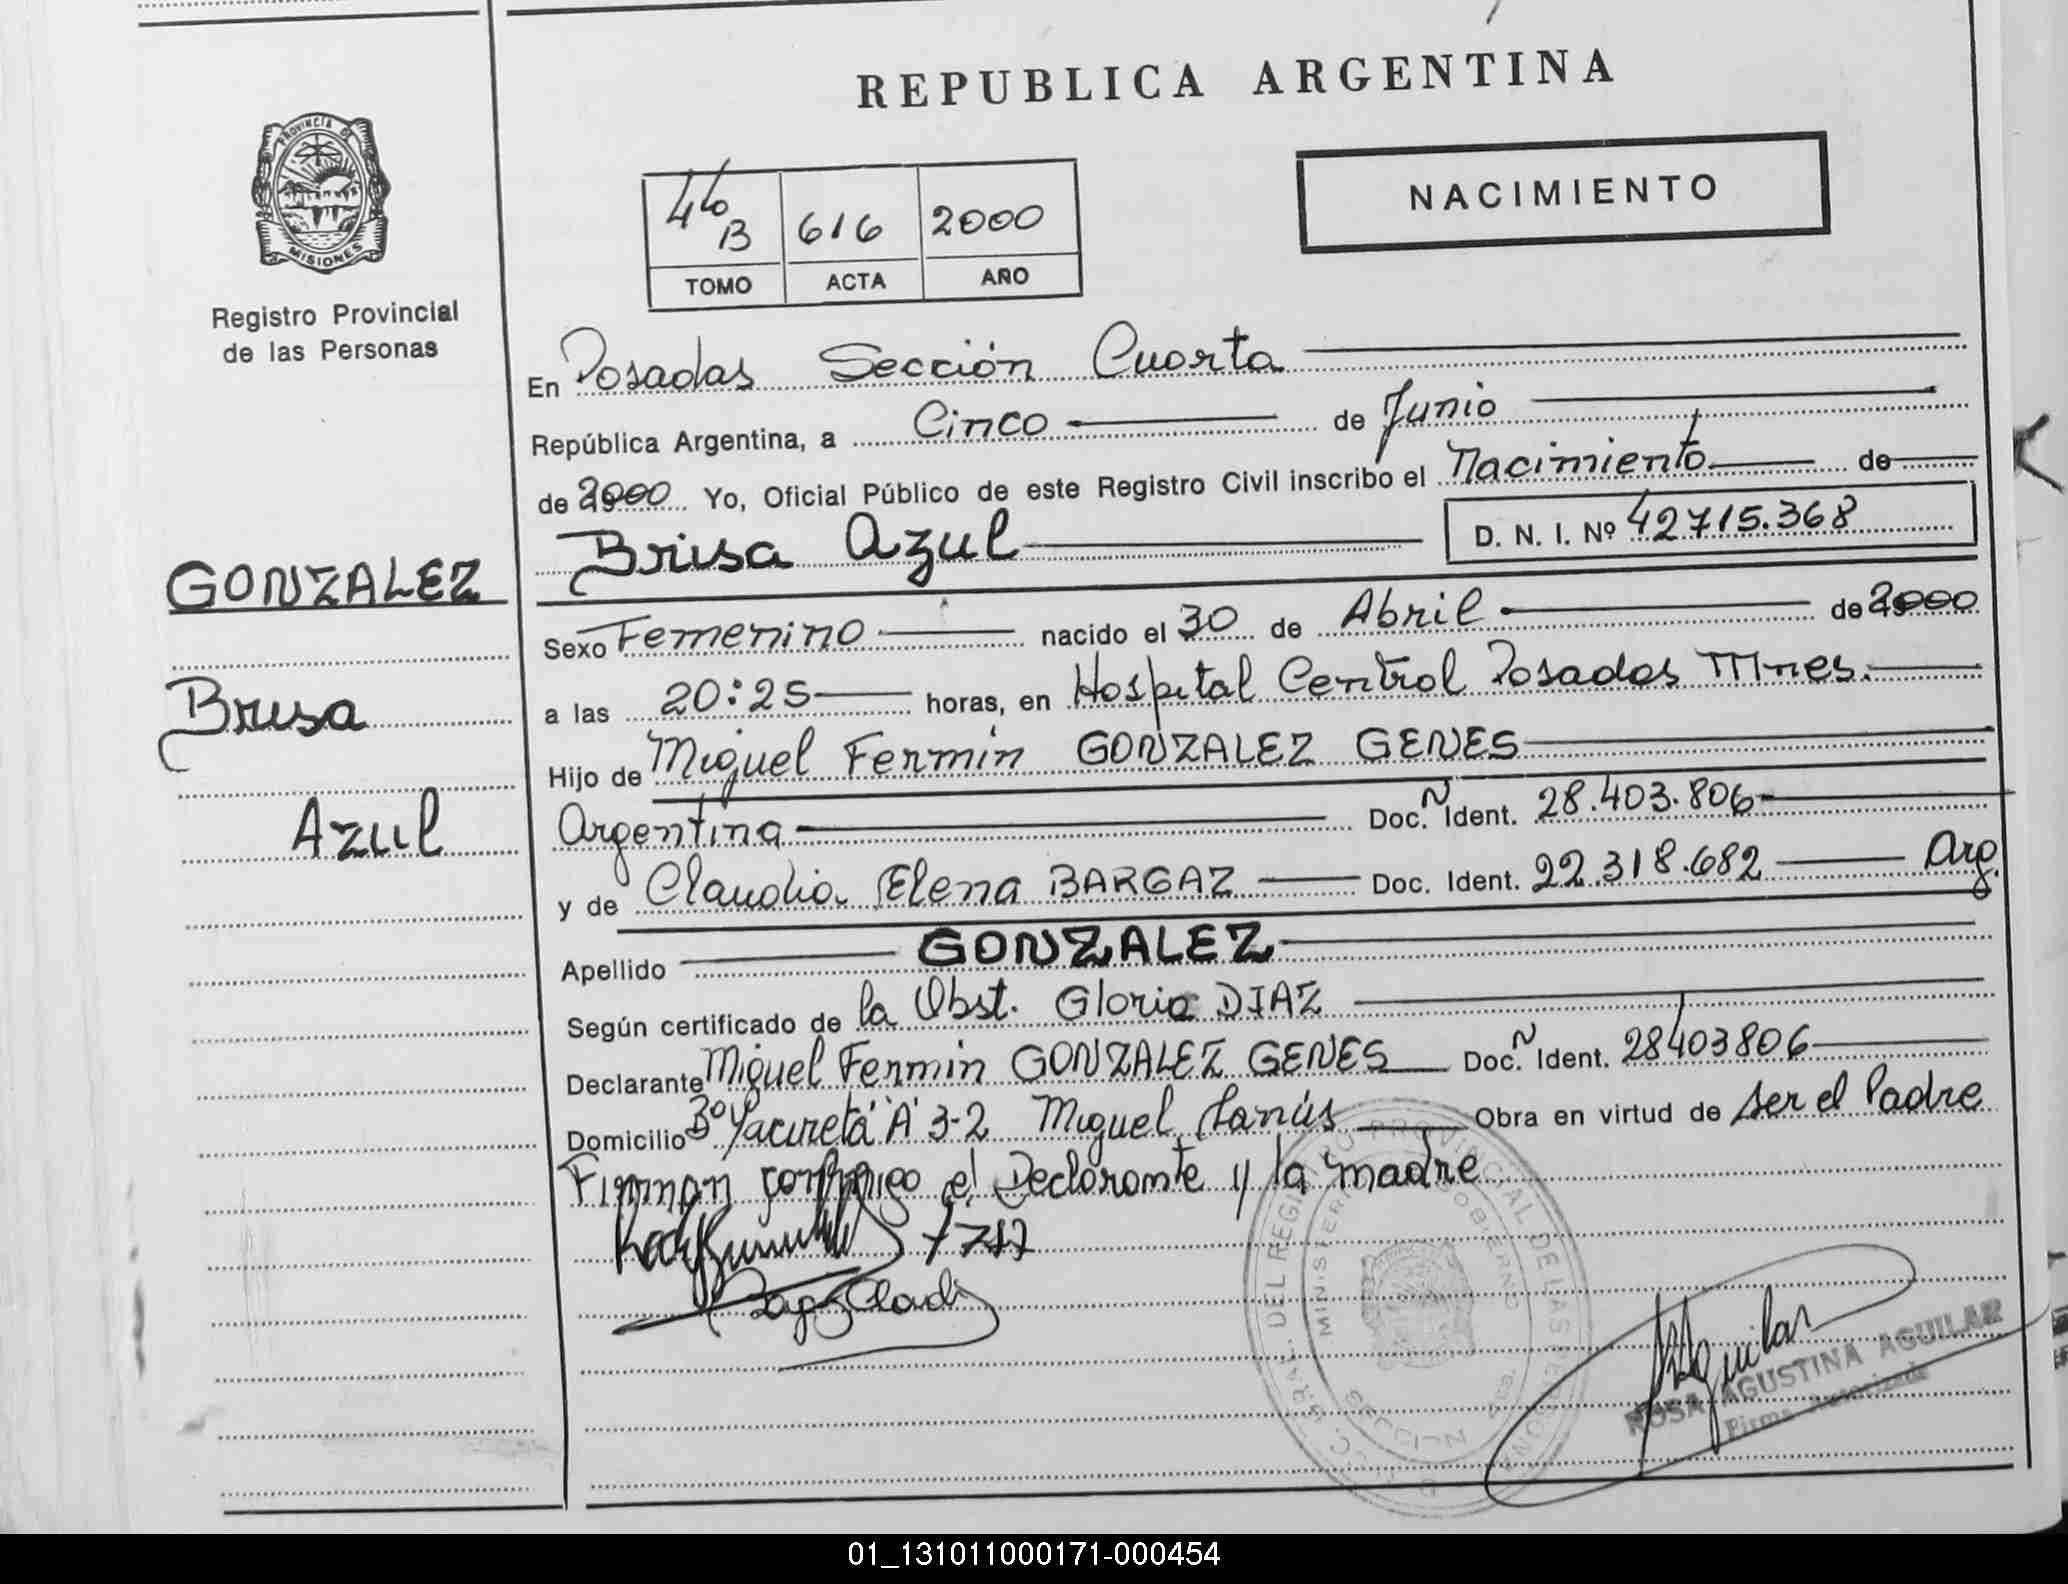 REPUBLICA ARGENTINA
PROVINCIA DE
MISIONES
Registro Provincial
de las Personas
NACIMIENTO
B 616 2000
TOMO ACTA AÑO
En Posadas Sección Cuarta
República Argentina, a Cinco de Junio
de 2000 Yo, Oficial Público de este Registro Civil inscribo el Nacimiento de
Brisa Azul D. N. I. Nº 42715.368
GONZALEZ
Brisa
Azul
Sexo Femenino nacido el 30 de Abril de 2000
a las 20:25 horas, en Hospital Central Posadas Mnes.
Hijo de Miguel Fermin GONZALEZ GENES
Argentina Doc. N Ident. 28.403.806
y de Claudia Elena BARGAZ Doc. Ident. 22.318.682 Arg.
Apellido GONZALEZ
Según certificado de la Obst. Gloria DIAZ
Declarante Miguel Fermin GONZALEZ GENES Doc. N Ident. 28403806
Domicilio Bº Yacireta "A" 3-2 Miguel Lanús Obra en virtud de ser el Padre
Firman conmigo el Declarante y la madre
MINISTERIO GOBIERNO
DEL REGISTRO PROVINCIAL DE LAS PERSONAS
Aguilar
ROSA AGUSTINA AGUILAR
Firma Autorizada
01_131011000171-000454